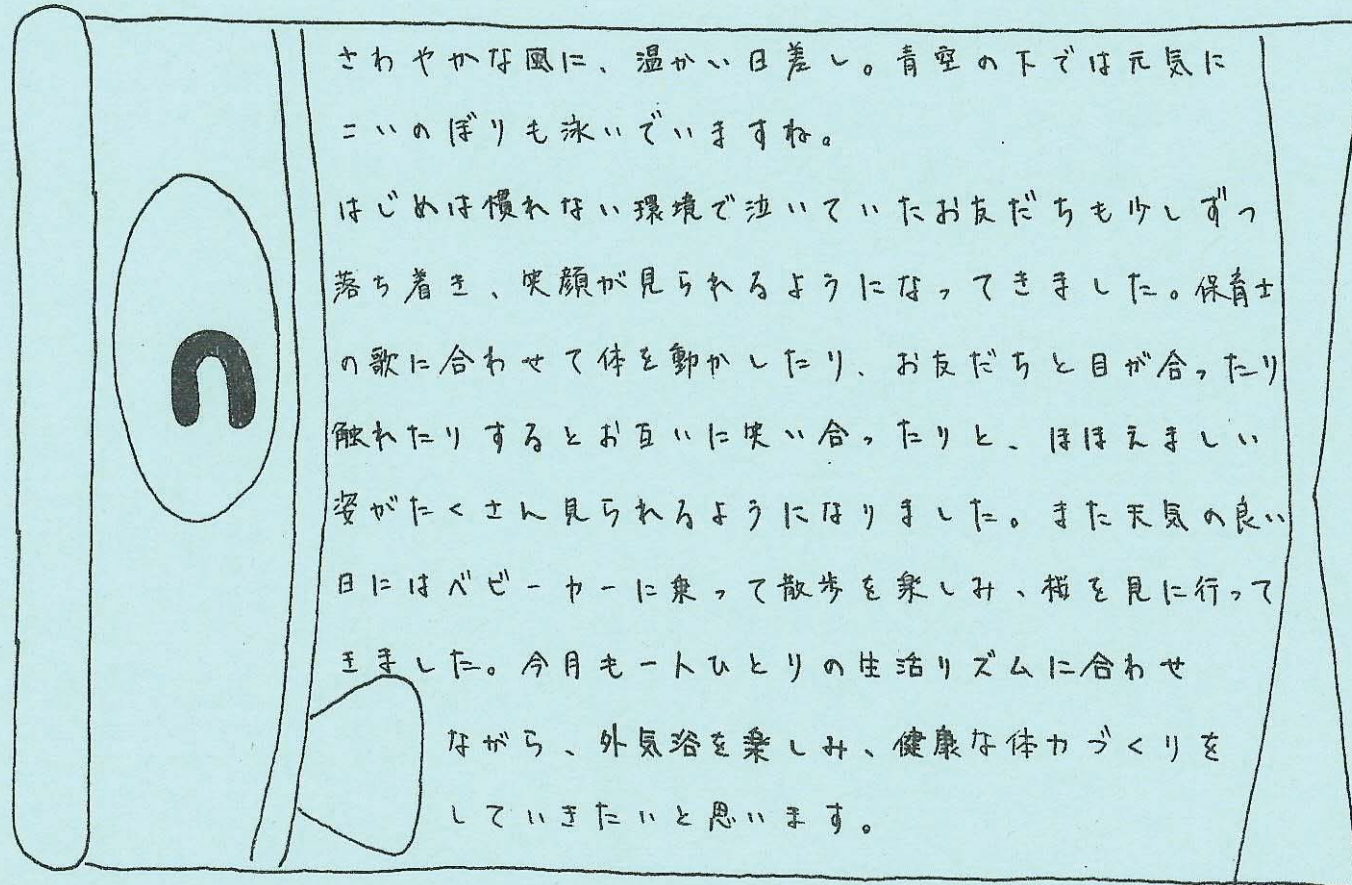 さわやかな風に、温かい日差し。青空の下では元気に
こいのぼりも泳いでいますね。
はじめは慣れない環境で泣いていたお友だちも少しずつ
落ち着き、笑顔が見られるようになってきました。保育士
の歌に合わせて体を動かしたり、お友だちと目が合ったり
触れたりするとお互いに笑い合ったりと、ほほえましい
姿がたくさん見られるようになりました。また天気の良い
日にはベビーカーに乗って散歩を楽しみ、桜を見に行って
きました。今月も一人ひとりの生活リズムに合わせ
ながら、外気浴を楽しみ、健康な体力づくりを
していきたいと思います。